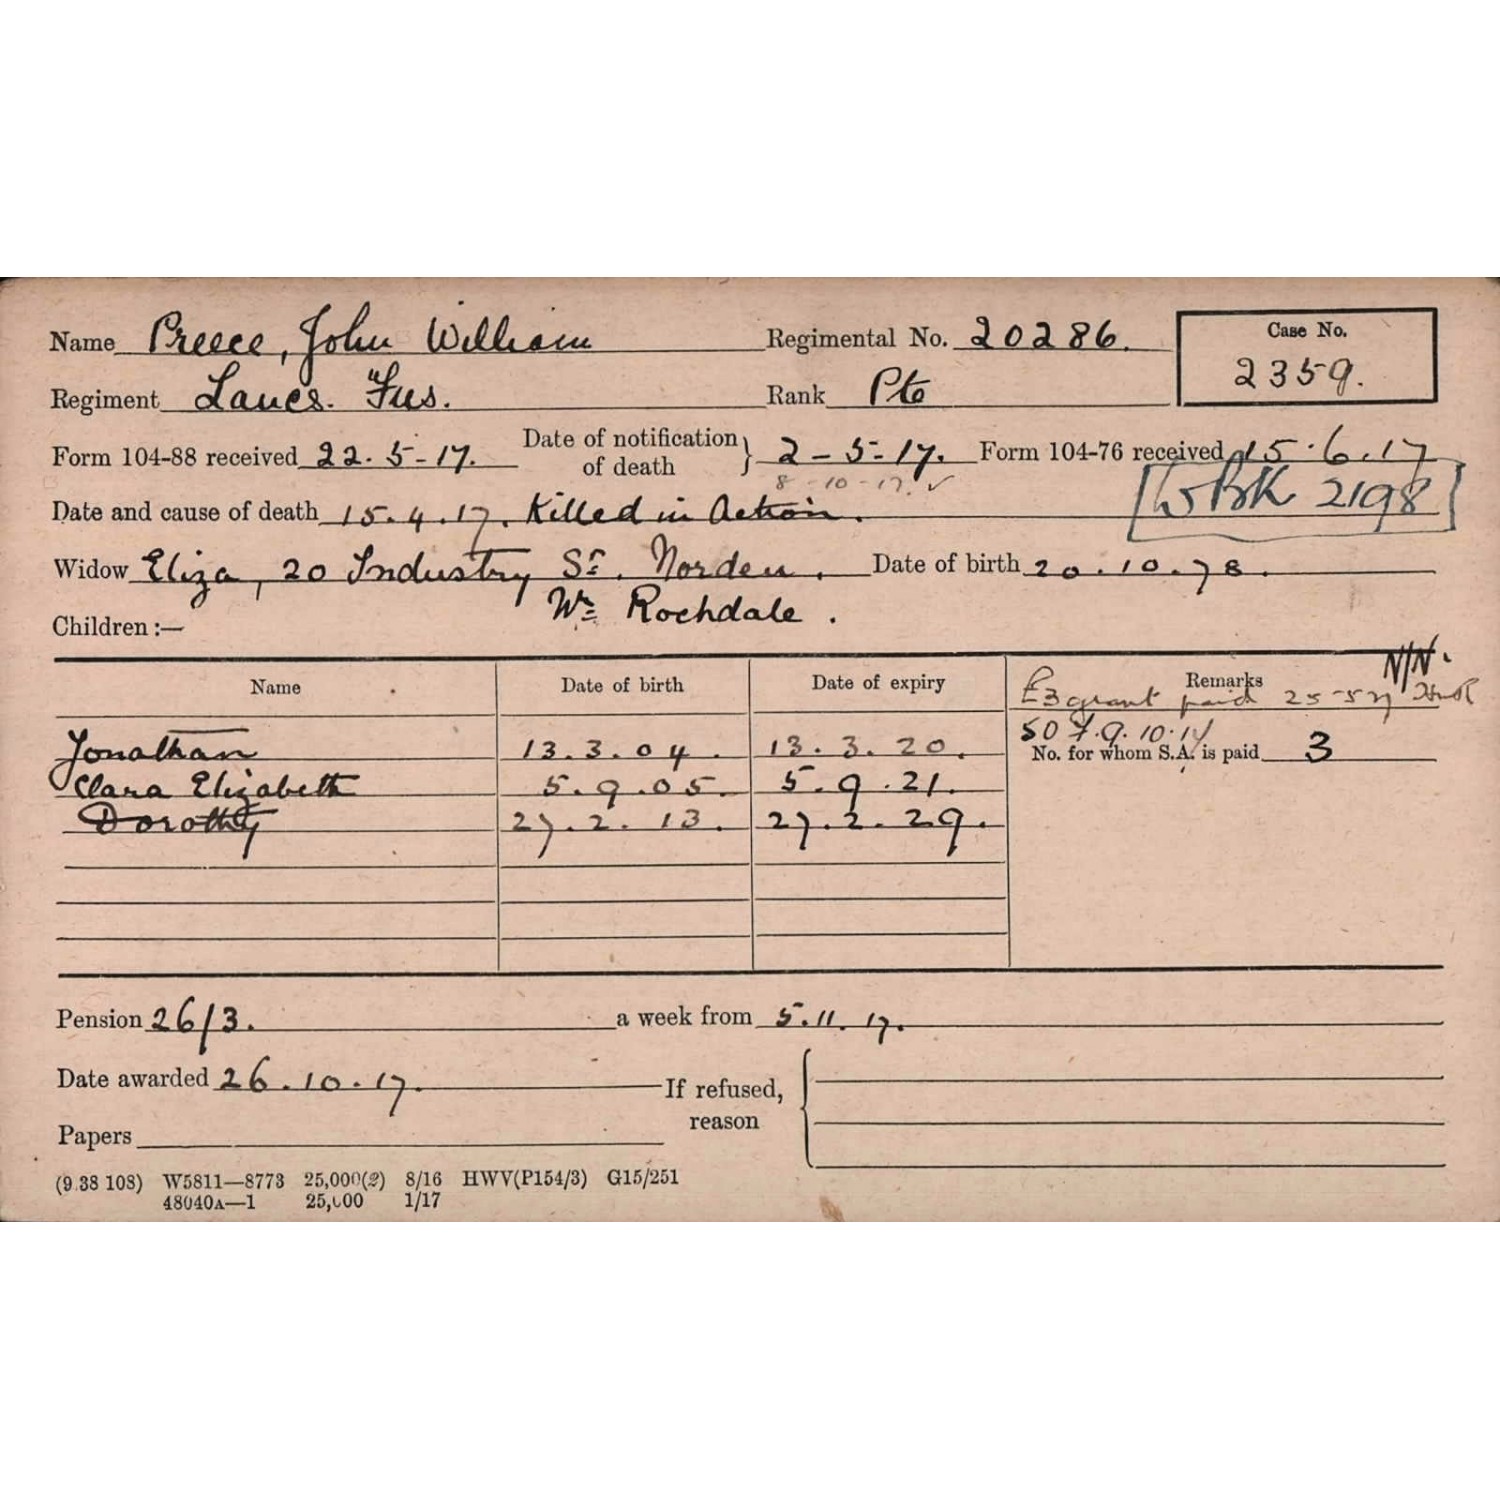 Name Preece, John William Regimental No. 20286. Case No.
2359.
Regiment Lancs. Fus. Rank Pte
Form 104-88 received 22.5-17. Date of notification of death } 2-5-17. Form 104-76 received 15.6.17
8-10-17. ✓
[WBK 2198]
Date and cause of death 15.4.17. Killed in Action.
Widow Eliza, 20 Industry St. Norden. Date of birth 20.10.78.
Nr Rochdale.
Children :—
N/N.
Name Date of birth Date of expiry Remarks
£3 grant paid 25-5-17
Jonathan 13.3.04. 13.3.20.
No. for whom S.A. is paid 3
Clara Elizabeth 5.9.05. 5.9.21.
Dorothy 27.2.13. 27.2.29.
Pension 26/3. a week from 5.11.17.
Date awarded 26.10.17. If refused, reason
Papers
(9.38 108) W5811—8773 25,000(2) 8/16 HWV(P154/3) G15/251
48040A—1 25,000 1/17